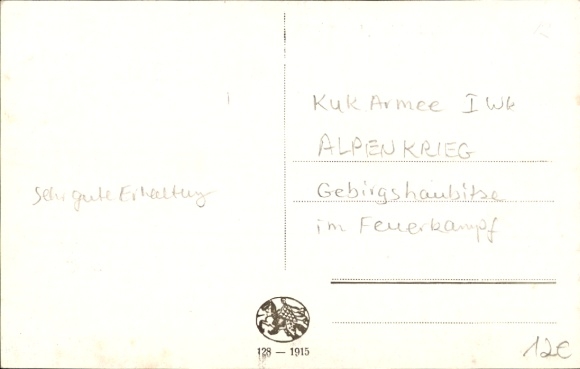 KuK Armee I Wk
ALPENKRIEG
Gebirgshaubitze
im Feuerkampf
Sehr gute Erhaltung
128 — 1915
12€